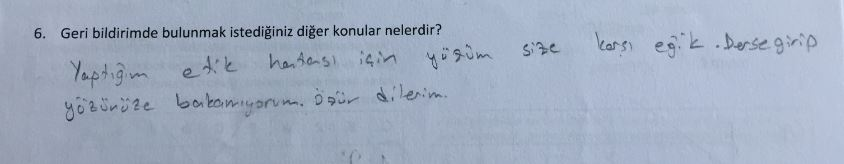 6. Geri bildirimde bulunmak istediğiniz diğer konular nelerdir?
Yaptığım etik hatası için yüzüm size karşı eğik. Derse girip
yüzünüze bakamıyorum. Özür dilerim.